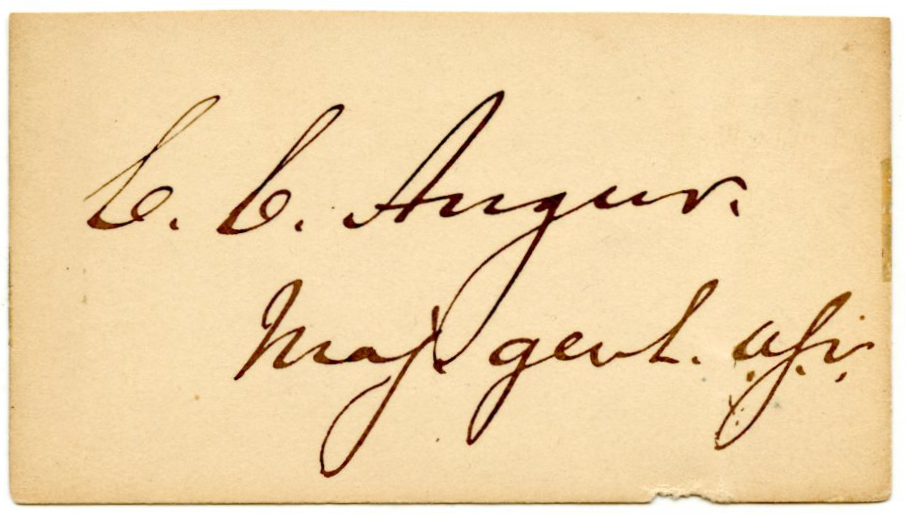 C. C. Augur.
Maj. genl. U.S.V.